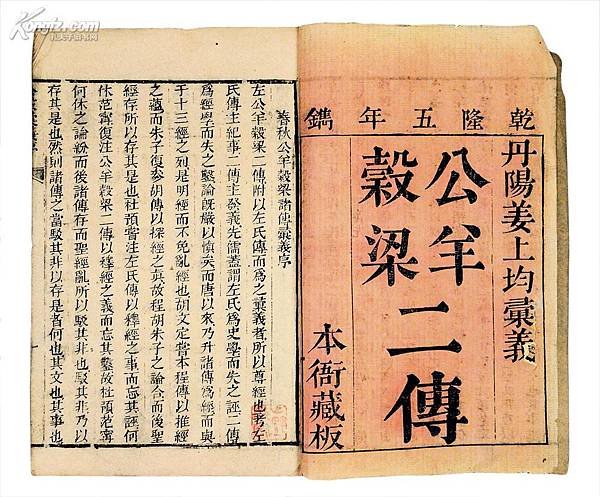 乾隆五年鐫
丹陽姜上均彙義
公羊
穀梁
二傳
本衙藏板
春秋公羊穀梁諸傳彙義序
左公羊穀梁二傳附以左氏傳而為之彙義者所以尊經也考左
氏傳主紀事二傳主發義先儒蓋謂左氏為史學而失之誣二傳
為經學而失之鑿論旣嚴以慎矣而唐以來乃升諸傳為經而與
于十三經之列是明經而不免亂經也胡文定嘗本程傳以推經
之蘊而朱子復參胡傳以探經之眞故程胡朱子之論合而後聖
經存所以存其是也杜預嘗注左氏傳以釋經之事而忘其誣何
休范甯復注公羊穀梁二傳以釋經之義而忘其鑿故杜預范甯
何休之論紛而後諸傳存而聖經亂所以駁其非也駁其非乃以
存其是也然則諸傳之當駁其非以存是者何也其文也其事也
Kongfz.com
孔夫子旧书网